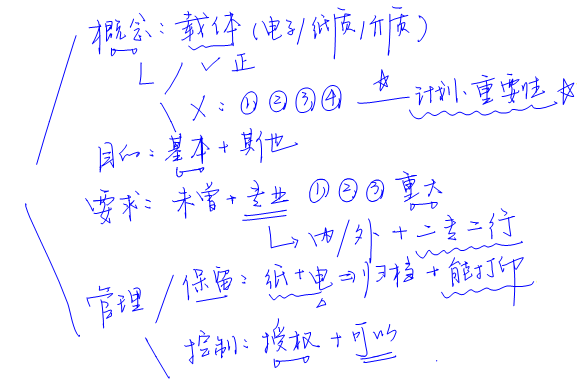 概念：载体（电子/纸质/介质）
✓正
×：①②③④ —— 计划、重要性 ☆
☆
目的：基本+其他
要求：未曾+专业 ①②③ 重大
↳ 内/外 + 二专二行
管理
保留：纸+电⇒归档+能打印
控制：授权+可以